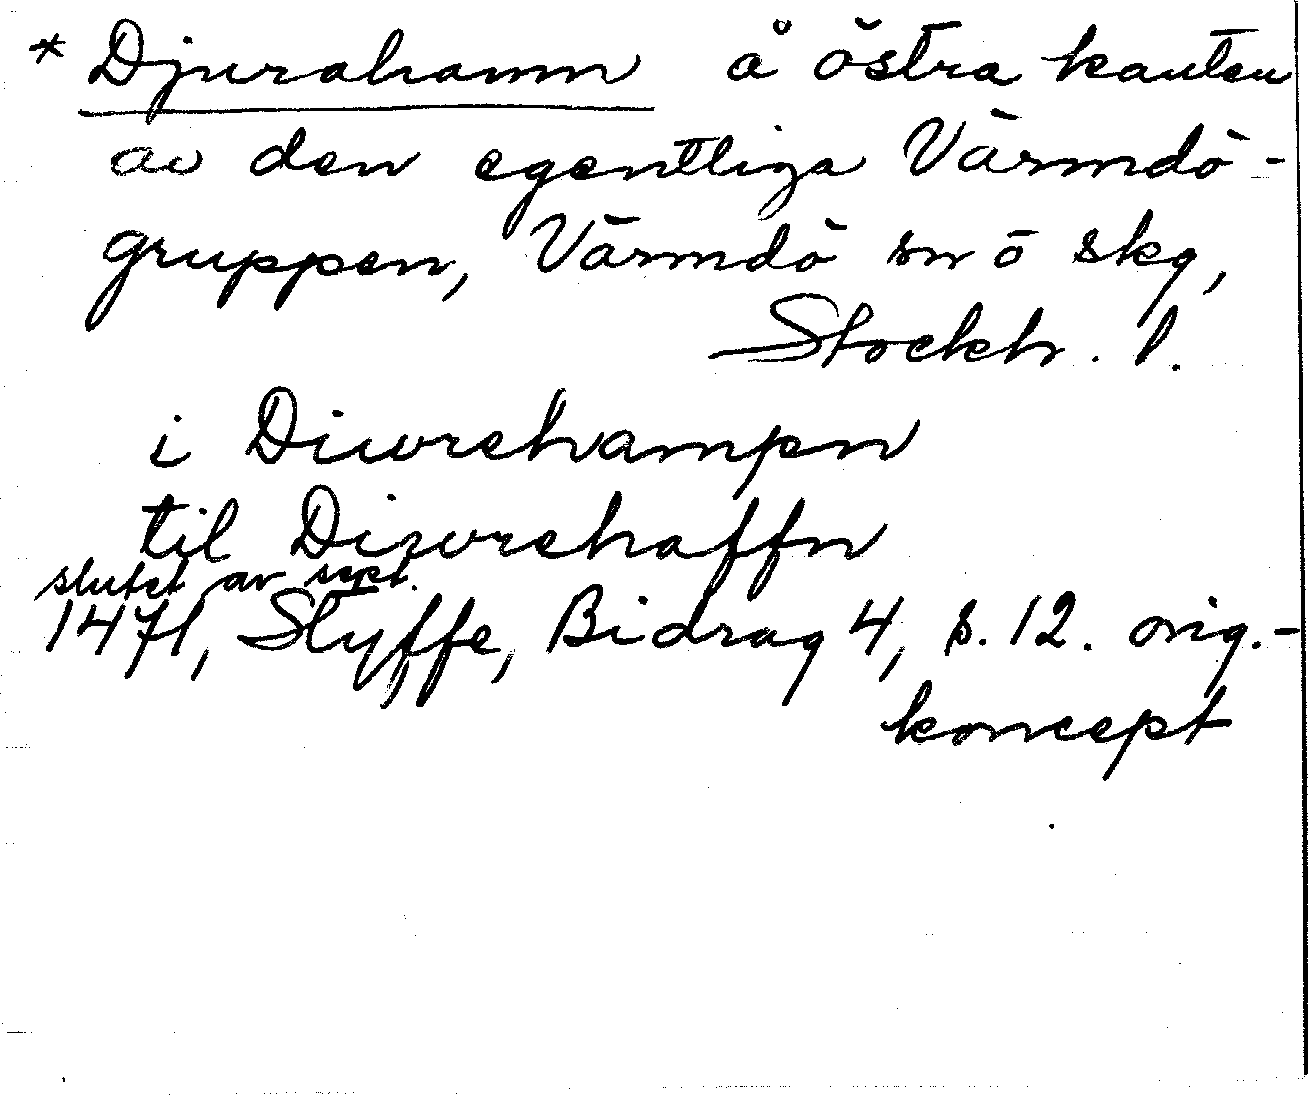 * Djurahamn å östra kanten
av den egentliga Värmdö-
gruppen, Värmdö sn o skg,
Stockh. l.
i Diwrehampn
til Diwrehaffn
slutet av sept.
1471, Styffe, Bidrag 4, s. 12. orig.-
koncept